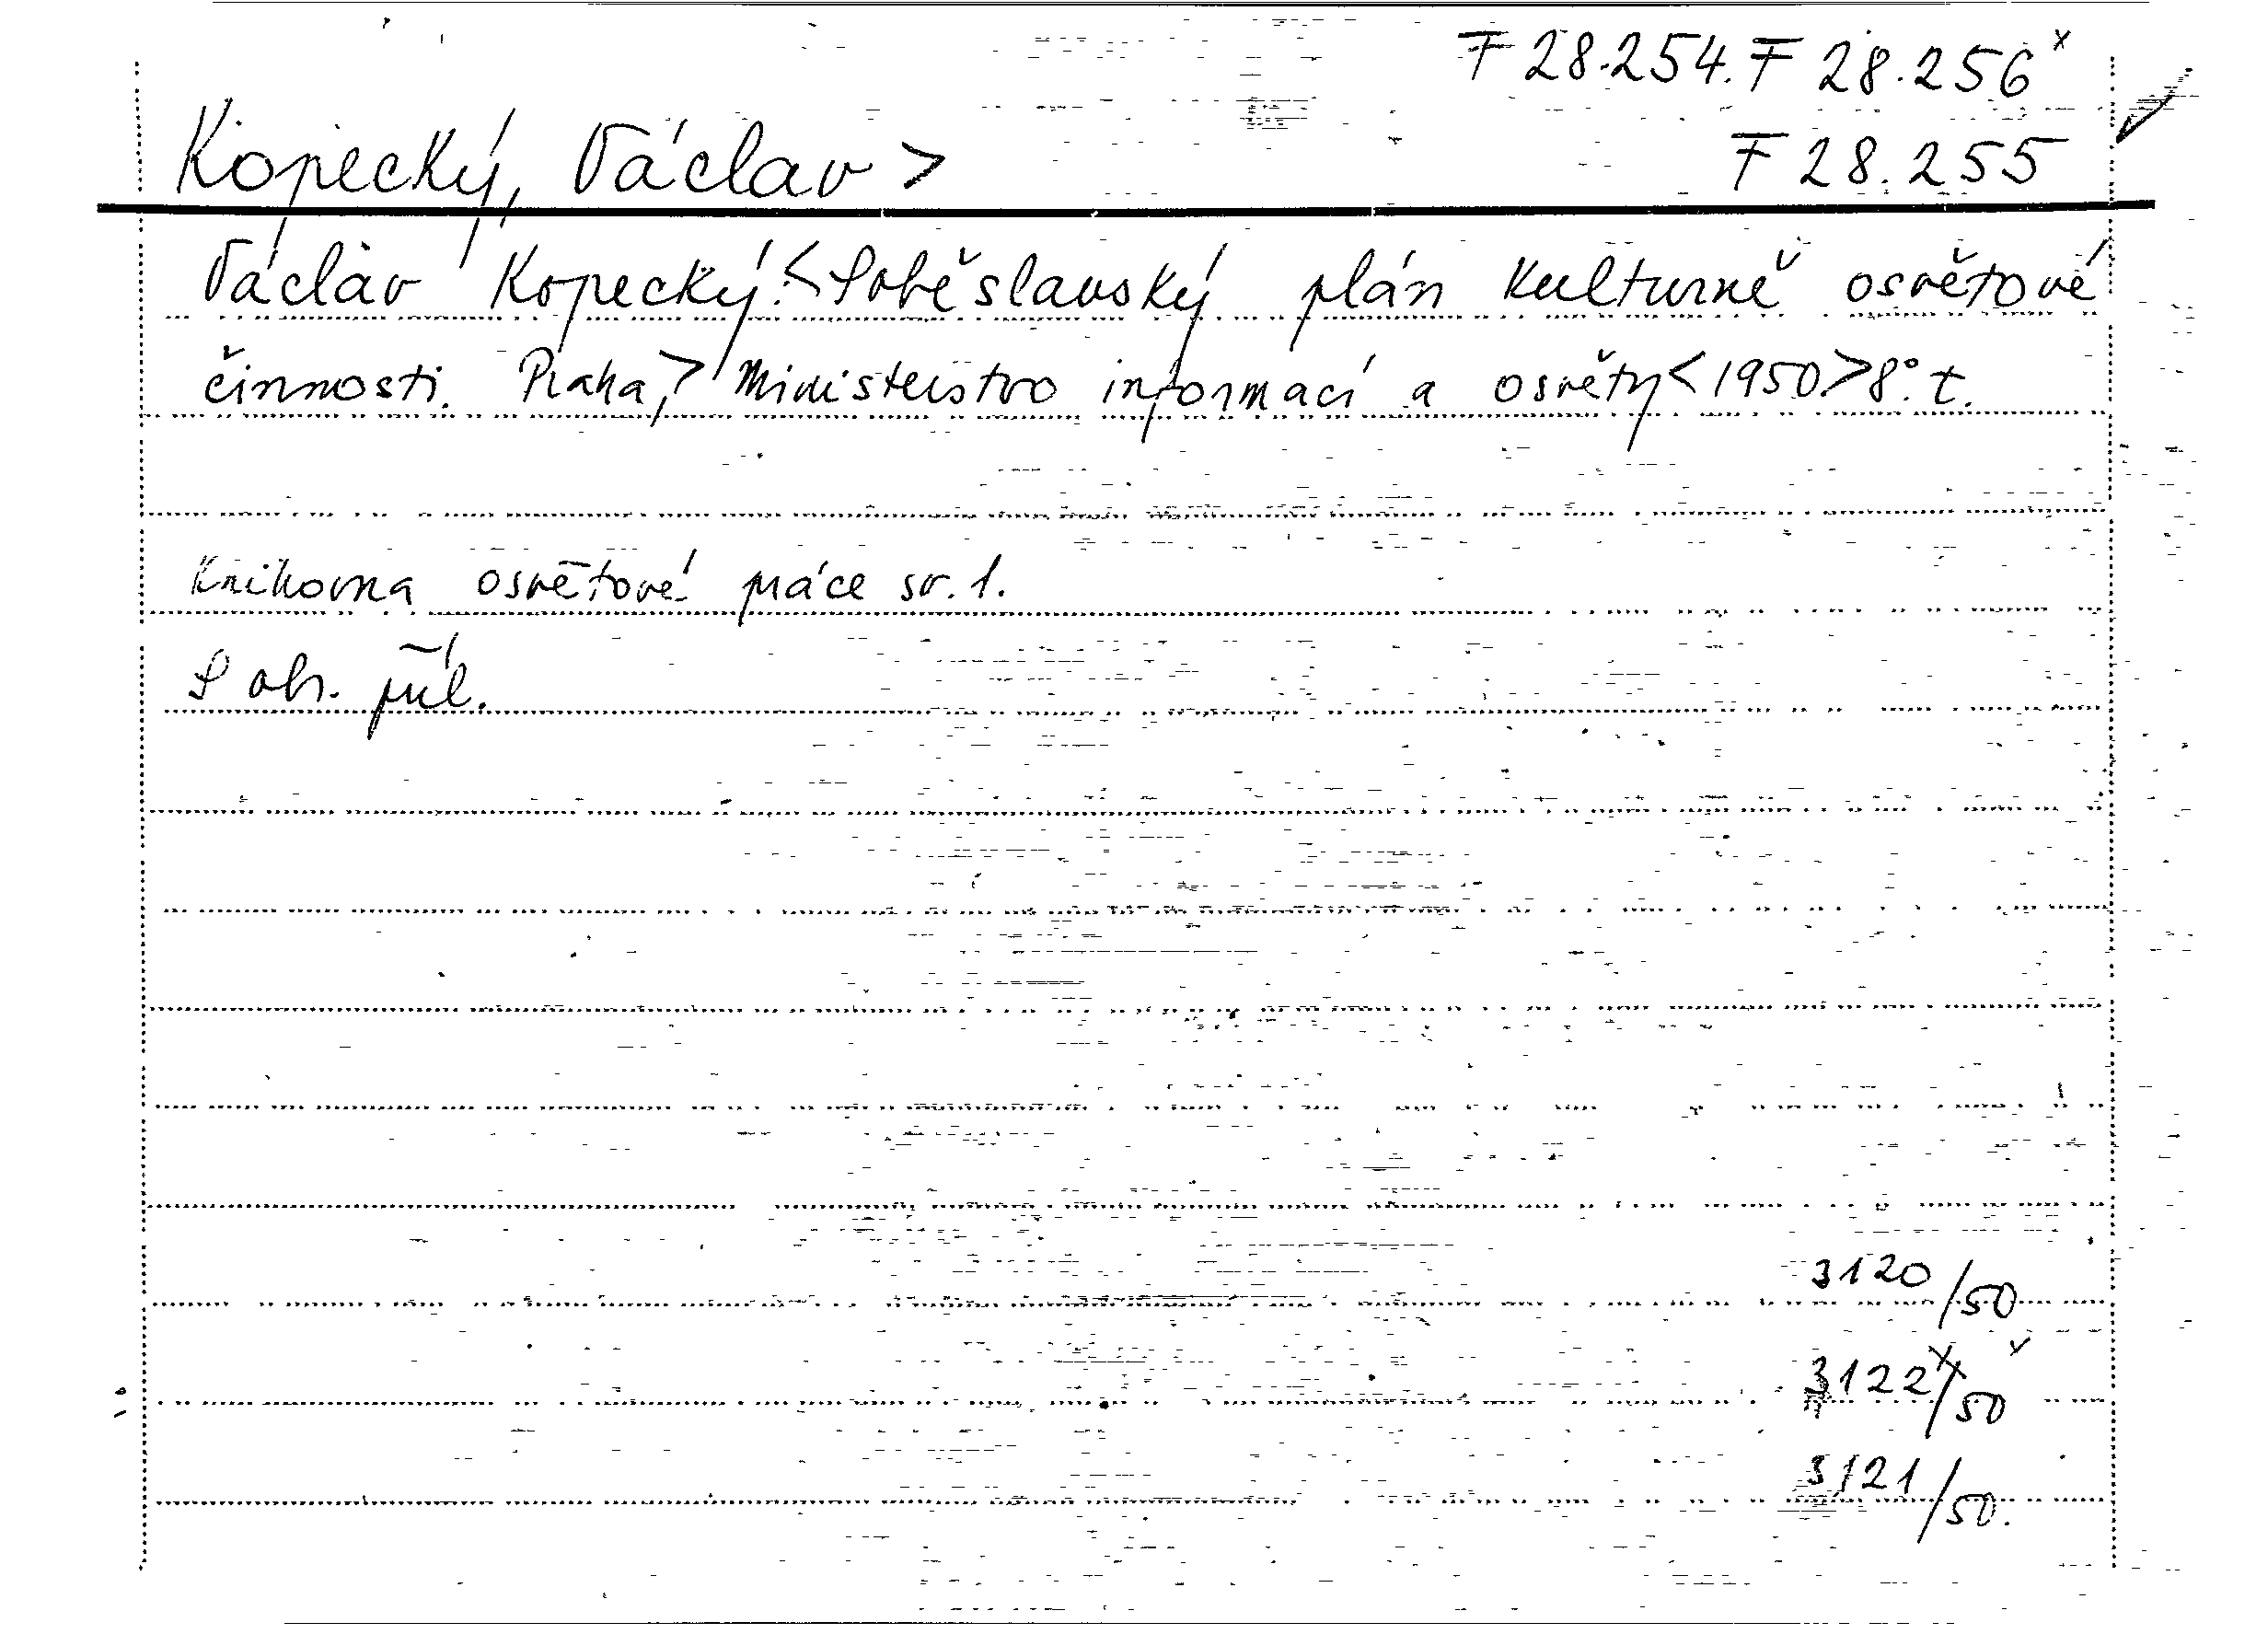 F 28.254. F 28.256 x
Kopecký, Václav > F 28.255
Václav Kopecký: < Soběslavský plán kulturně osvětové
činnosti. Praha, > Ministerstvo informací a osvěty < 1950 > 8°. t.
Knihovna osvětové práce sv. 1.
S obr. příl.
3120/50
3122x/50
3121/50.